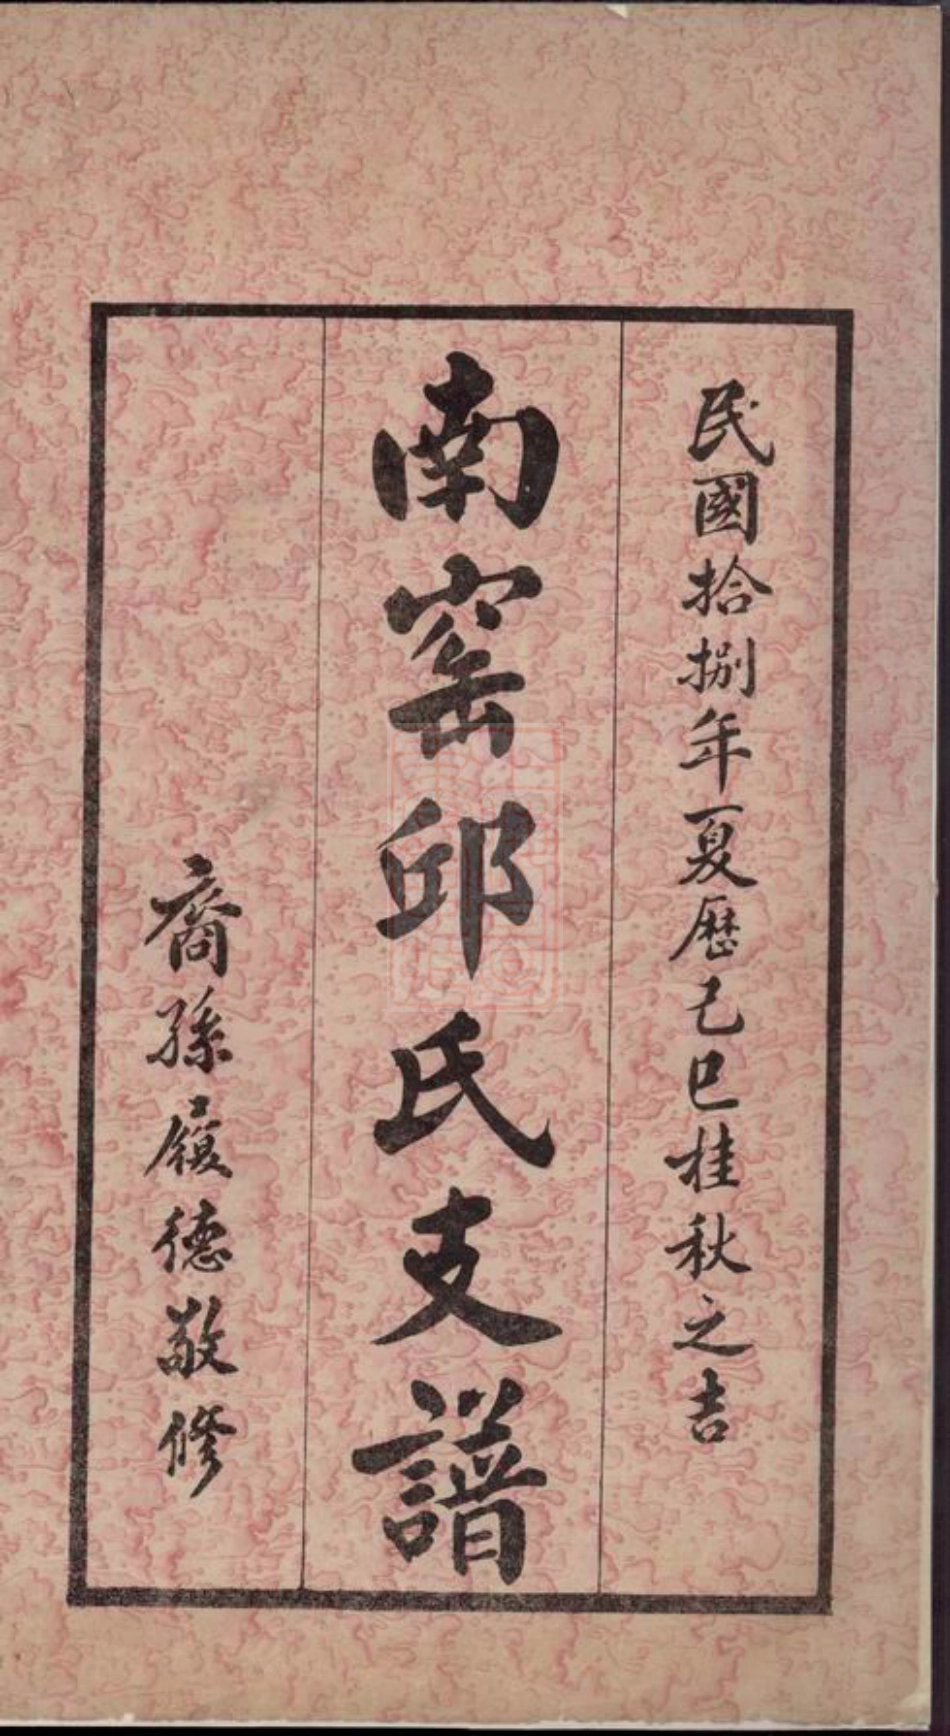 民國拾捌年夏歷己巳桂秋之吉
南窰邱氏支譜
裔孫履德敬修